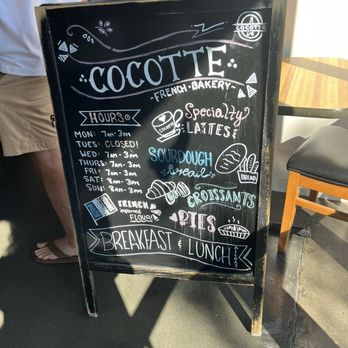 COCOTTE
COCOTTE
FRENCH-BAKERY
HOURS
MON: 7am-3pm
TUES: CLOSED!
WED: 7am-3pm
THURS: 7am-3pm
FRI: 7am-3pm
SAT: 8am-3pm
SUN: 8am-3pm
Specialty
LATTES
SOURDOUGH
bread
BREAD
CROISSANTS
FRENCH
imported
FLOUR
PIES
BREAKFAST & LUNCH